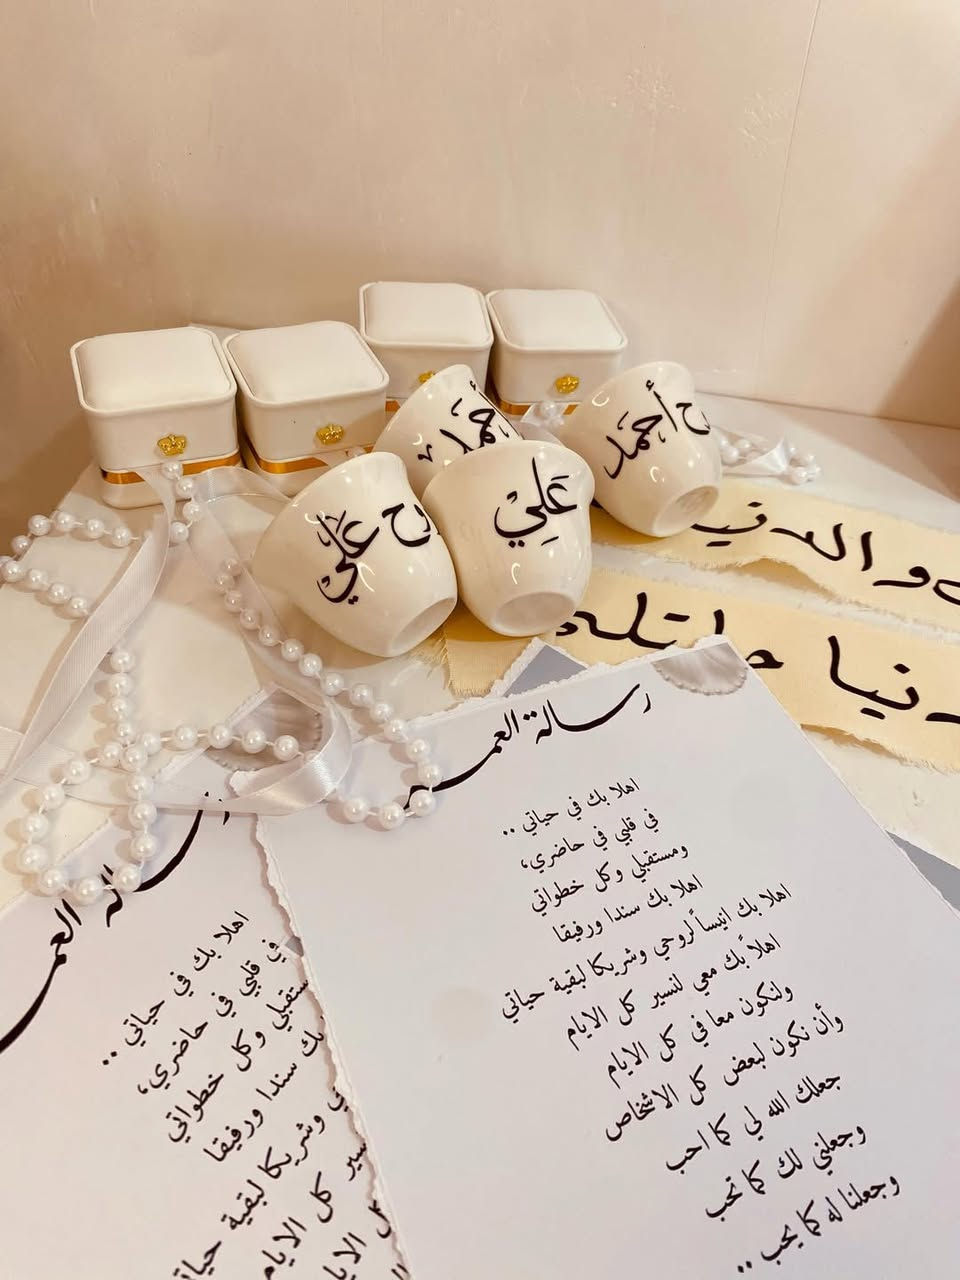 أحمد
روح أحمد
روح علي
عَلِيْ
والدنيا
دنيا
رسالة العمر
اهلا بك في حياتي ..
في قلبي في حاضري،
ومستقبلي وكل خطواتي
اهلا بك سندا ورفيقا
اهلا بك انيساً لروحي وشريكا لبقية حياتي
اهلاً بك معي لنسير كل الايام
ولنكون معا في كل الايام
وأن نكون لبعض كل الاشخاص
جعلك الله لي كما احب
وجعلني لك كما تحب
وجعلنا له كما يحب ..
رسالة العمر
اهلا بك في حياتي ..
في قلبي في حاضري،
ومستقبلي وكل خطواتي
بك سندا ورفيقا
وشريكا لبقية حياتي
لنسير كل الايام
كل الايام